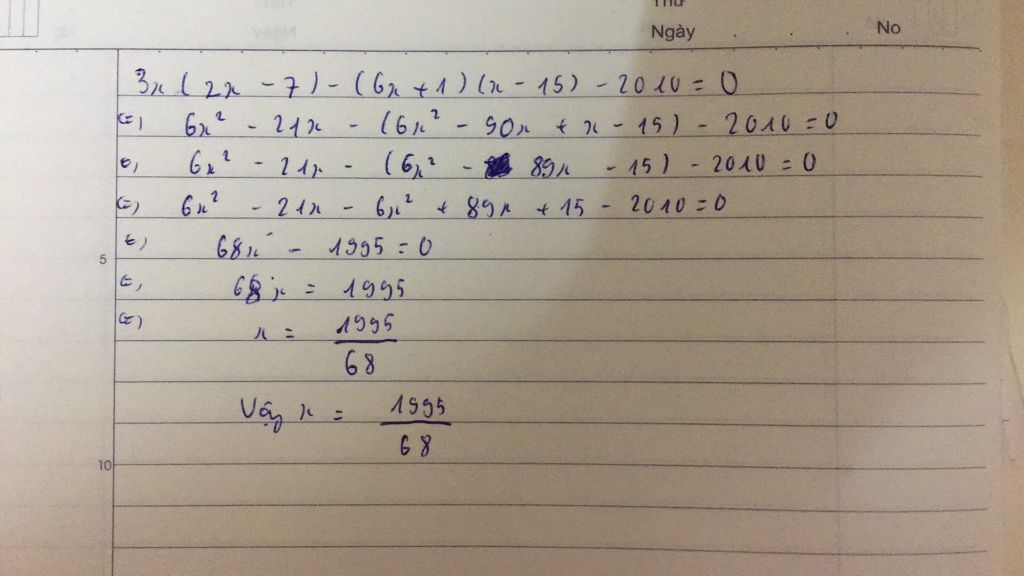 Thứ
Ngày No
3x(2x - 7) - (6x + 1)(x - 15) - 2010 = 0
(=) 6x² - 21x - (6x² - 90x + x - 15) - 2010 = 0
(=) 6x² - 21x - (6x² - 89x - 15) - 2010 = 0
(=) 6x² - 21x - 6x² + 89x + 15 - 2010 = 0
5 (=) 68x - 1995 = 0
(=) 68x = 1995
(=) x = 1995/68
Vậy x = 1995/68
10